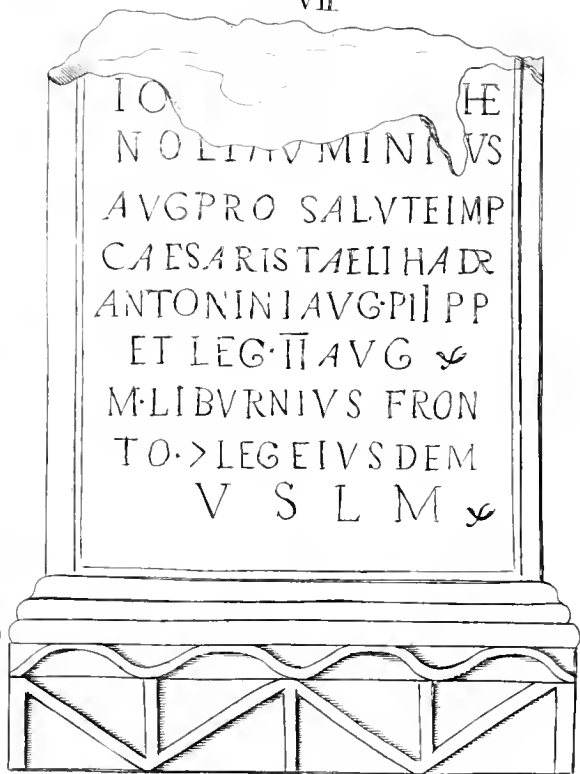 VII
IO HE
NOLI MINI VS
AVGPRO SALVTEIMP
CAESARISTAELIHADR
ANTONINIAVG·PII PP
ET LEG·II AVG
M·LIBVRNIVS FRON
TO·>LEGEIVSDEM
V S L M